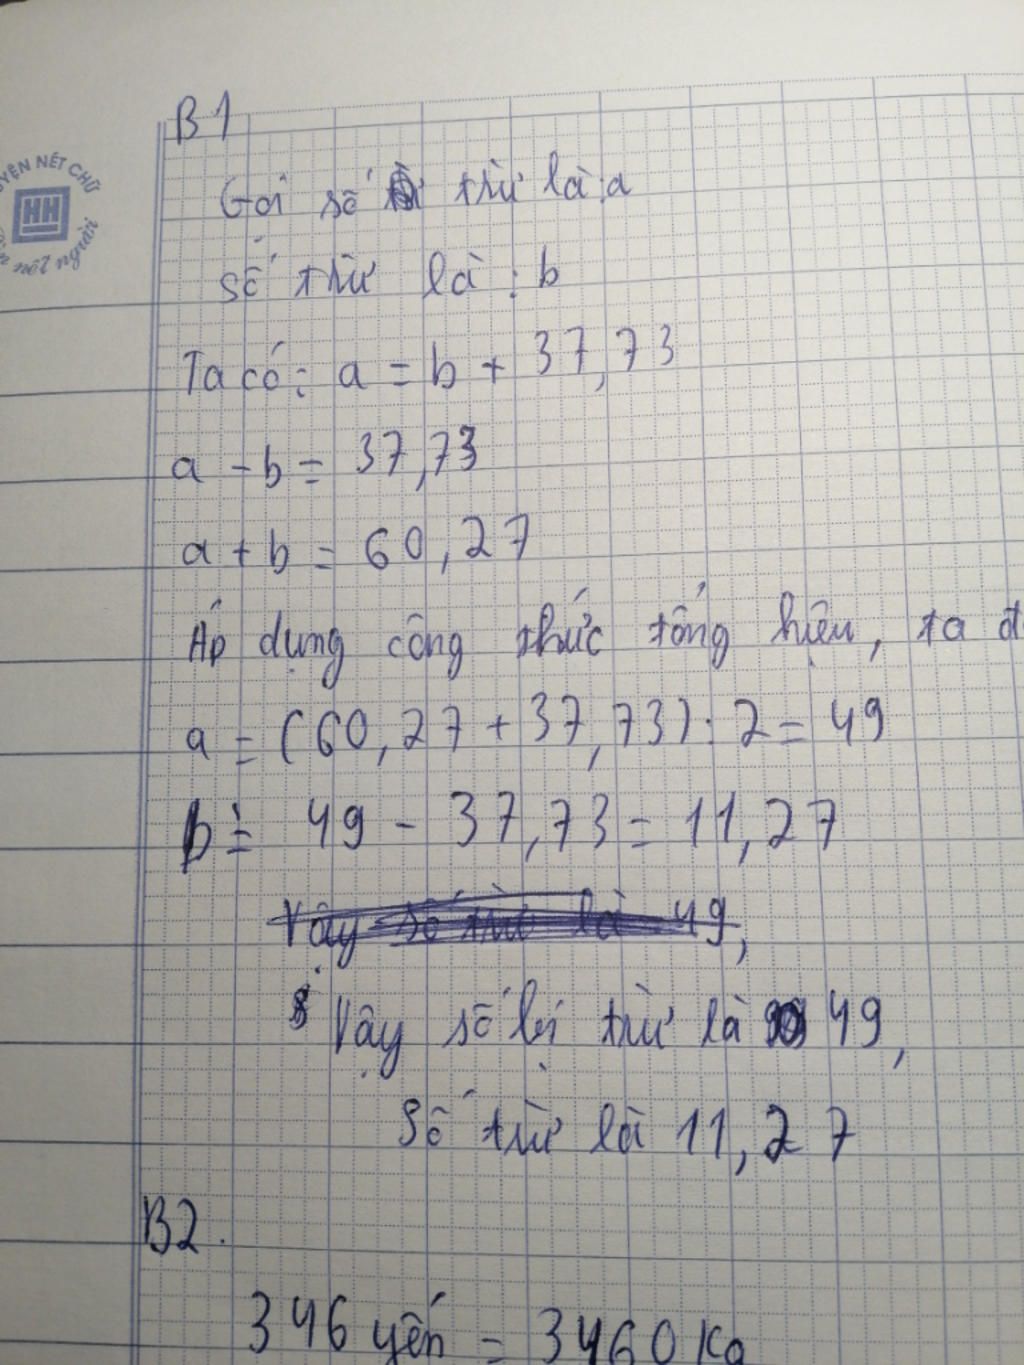 UYỆN NÉT CHỮ
HH
nết người
B1
Gọi số trừ là: a
số trừ là: b
Ta có: a = b + 37,73
a - b = 37,73
a + b = 60,27
Áp dụng công thức tổng hiệu, ta đ
a = (60,27 + 37,73) : 2 = 49
b = 49 - 37,73 = 11,27
Vậy số trừ là 49,
Vậy số bị trừ là 49,
Số trừ là 11,27
B2.
346 yến = 3460 Kg